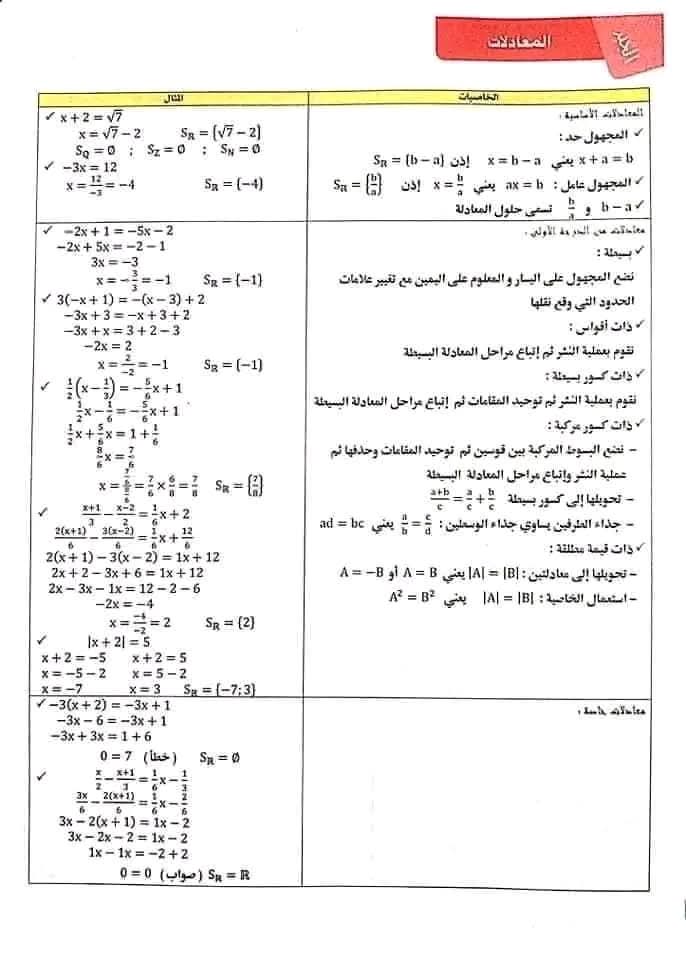 الجبر
المعادلات
الخاصيات
المعادلات الأساسية :
✓ المجهول حد :
x + a = b يعني x = b − a إذن S_R = {b − a}
✓ المجهول عامل : ax = b يعني x = b/a إذن S_R = {b/a}
✓ b − a و b/a تسمى حلول المعادلة
المثال
✓ x + 2 = √7
x = √7 − 2 S_R = {√7 − 2}
S_Q = ∅ ; S_Z = ∅ ; S_N = ∅
✓ −3x = 12
x = 12/−3 = −4 S_R = {−4}
معادلات من الدرجة الأولى :
✓ بسيطة :
نضع المجهول على اليسار و المعلوم على اليمين مع تغيير علامات
الحدود التي وقع نقلها
✓ ذات أقواس :
نقوم بعملية النشر ثم إتباع مراحل المعادلة البسيطة
✓ ذات كسور بسيطة :
نقوم بعملية النشر ثم توحيد المقامات ثم إتباع مراحل المعادلة البسيطة
✓ ذات كسور مركبة :
− نضع البسوط المركبة بين قوسين ثم توحيد المقامات وحذفها ثم
عملية النشر وإتباع مراحل المعادلة البسيطة
− تحويلها إلى كسور بسيطة (a+b)/c = a/c + b/c
− جذاء الطرفين يساوي جذاء الوسطين : a/b = c/d يعني ad = bc
✓ ذات قيمة مطلقة :
− تحويلها إلى معادلتين : |A| = |B| يعني A = B أو A = −B
− استعمال الخاصية : |A| = |B| يعني A² = B²
✓ −2x + 1 = −5x − 2
−2x + 5x = −2 − 1
3x = −3
x = −3/3 = −1 S_R = {−1}
✓ 3(−x + 1) = −(x − 3) + 2
−3x + 3 = −x + 3 + 2
−3x + x = 3 + 2 − 3
−2x = 2
x = 2/−2 = −1 S_R = {−1}
✓ 1/2(x − 1/3) = −5/6x + 1
1/2x − 1/6 = −5/6x + 1
1/2x + 5/6x = 1 + 1/6
8/6x = 7/6
x = (7/6)/(8/6) = 7/6 × 6/8 = 7/8 S_R = {7/8}
✓ (x+1)/3 − (x−2)/2 = 1/6x + 2
2(x+1)/6 − 3(x−2)/6 = 1/6x + 12/6
2(x + 1) − 3(x − 2) = 1x + 12
2x + 2 − 3x + 6 = 1x + 12
2x − 3x − 1x = 12 − 2 − 6
−2x = −4
x = −4/−2 = 2 S_R = {2}
✓ |x + 2| = 5
x + 2 = −5 x + 2 = 5
x = −5 − 2 x = 5 − 2
x = −7 x = 3 S_R = {−7; 3}
معادلات خاصة :
✓ −3(x + 2) = −3x + 1
−3x − 6 = −3x + 1
−3x + 3x = 1 + 6
0 = 7 (خطأ) S_R = ∅
✓ x/2 − (x+1)/3 = 1/6x − 1/3
3x/6 − 2(x+1)/6 = 1/6x − 2/6
3x − 2(x + 1) = 1x − 2
3x − 2x − 2 = 1x − 2
1x − 1x = −2 + 2
0 = 0 (صواب) S_R = ℝ